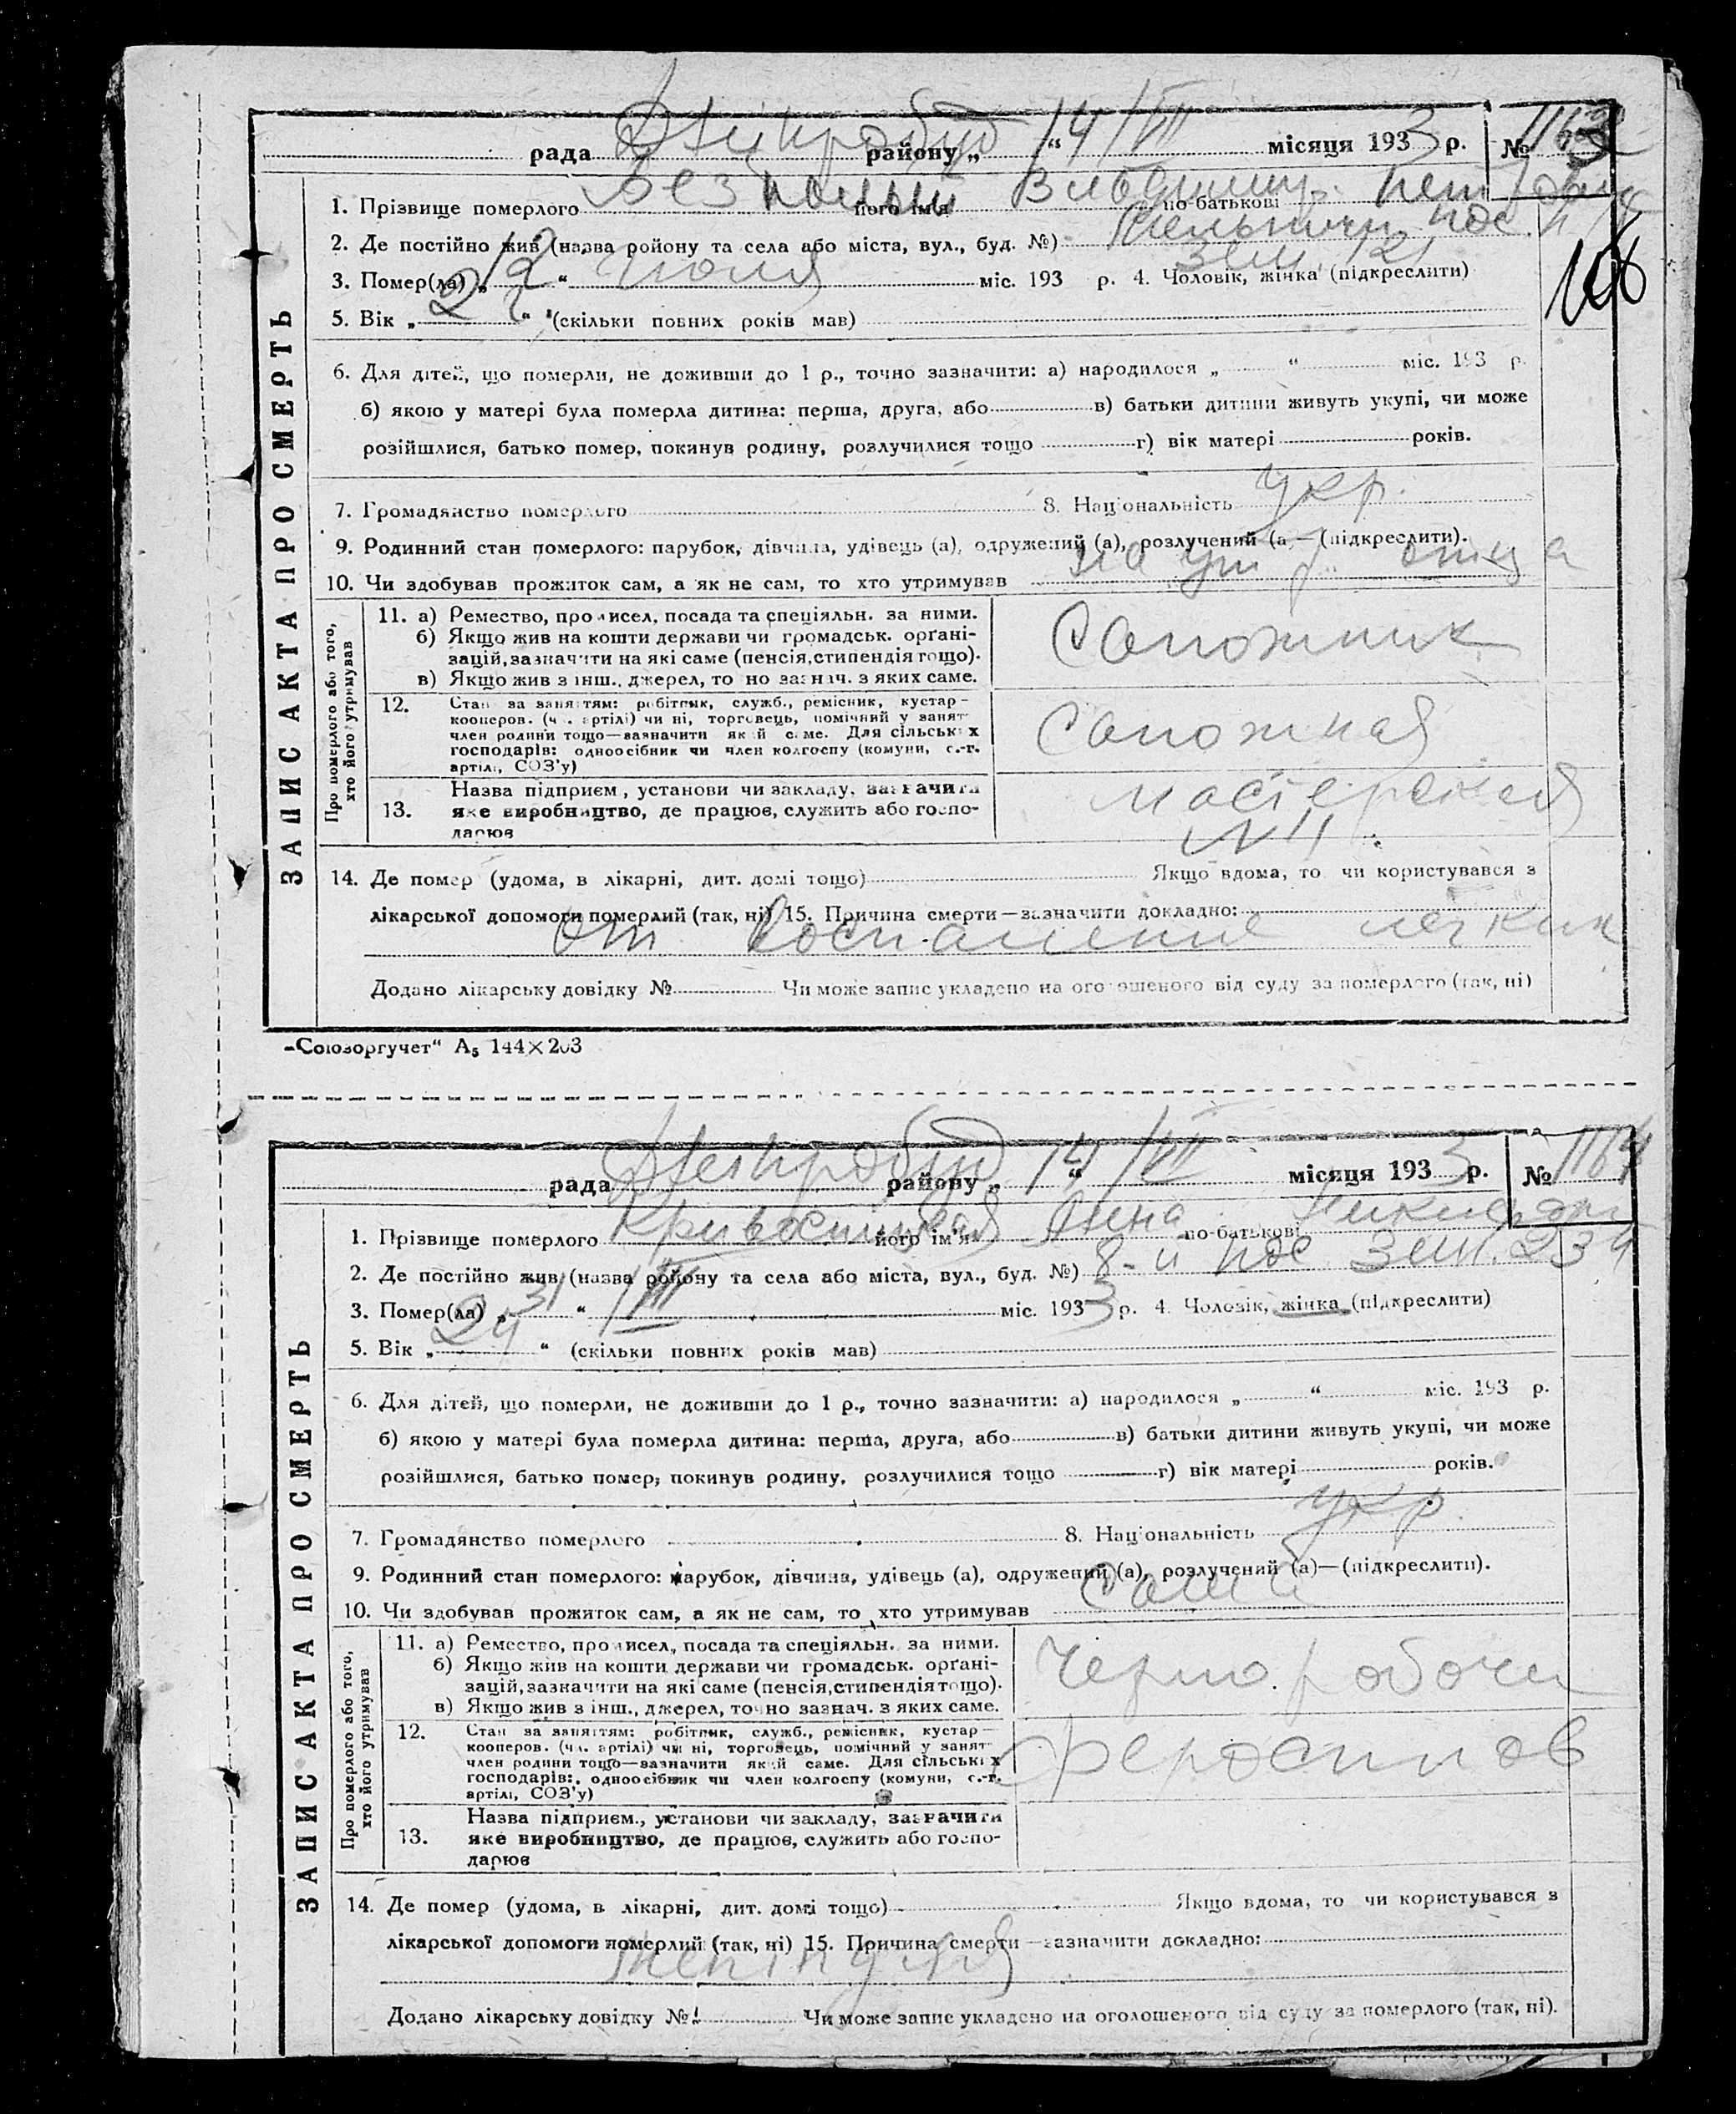 рада Днепробуд району „ 14 “ /VII місяця 1933 р. № 1163
1. Прізвище померлого його імя по-батькові
2. Де постійно жив (назва району та села або міста, вул., буд. №) пос.
Зем. 121
3. Помер(ла) „ 12 “ июля міс. 193 р. 4. Чоловік, жінка (підкреслити)
108
5. Вік „ 2 г “ (скільки повних років мав)
6. Для дітей, що померли, не доживши до 1 р., точно зазначити: а) народилося „ “ міс. 193 р.
б) якою у матері була померла дитина: перша, друга, або в) батьки дитини живуть укупі, чи може
розійшлися, батько помер, покинув родину, розлучилися тощо г) вік матері років.
7. Громадянство померлого 8. Національність укр.
9. Родинний стан померлого: парубок, дівчина, удівець (а), одружений (а), розлучений (а)—(підкреслити).
10. Чи здобував прожиток сам, а як не сам, то хто утримував на иш. отца
ЗАПИС АКТА ПРО СМЕРТЬ
Про померлого або того, хто його утримував
11. а) Ремество, промисел, посада та спеціяльн. за ними.
б) Якщо жив на кошти держави чи громадськ. орґані-
зацій, зазначити на які саме (пенсія, стипендія тощо).
в) Якщо жив з інш., джерел, точно зазнач. з яких саме.
Сапожник
12. Стан за заняттям: робітник, служб., ремісник, кустар—
кооперов. (чл. артілі) чи ні, торговець, помічний у занят—
член родини тощо—зазначити який саме. Для сільських
господарів: одноосібник чи член колгоспу (комуни, с.-г.
артілі, СОЗ'у)
Сапожная
13. Назва підприєм., установи чи закладу, зазначити
яке виробництво, де працює, служить або госпо-
дарює
мастерская
№ 11
14. Де помер (удома, в лікарні, дит. домі тощо) Якщо вдома, то чи користувався з
лікарської допомоги померлий (так, ні) 15. Причина смерти—зазначити докладно:
от Воспаление легких
Додано лікарську довідку № Чи може запис укладено на оголошеного від суду за померлого (так, ні)
„Союзоргучет“ А5 144×203
рада Днепробуд району „ 14 “ /VII місяця 1933 р. № 1164
1. Прізвище померлого його ім'я Анна по-батькові
2. Де постійно жив (назва району та села або міста, вул., буд. №) 8-й пос. зем. 234
3. Помер(ла) „ 31 “ /III міс. 1933 р. 4. Чоловік, жінка (підкреслити)
5. Вік „ 24 “ (скільки повних років мав)
6. Для дітей, що померли, не доживши до 1 р., точно зазначити: а) народилося „ “ міс. 193 р.
б) якою у матері була померла дитина: перша, друга, або в) батьки дитини живуть укупі, чи може
розійшлися, батько помер, покинув родину, розлучилися тощо г) вік матері років.
7. Громадянство померлого 8. Національність укр.
9. Родинний стан померлого: парубок, дівчина, удівець (а), одружений (а), розлучений (а)—(підкреслити).
10. Чи здобував прожиток сам, а як не сам, то хто утримував сама
ЗАПИС АКТА ПРО СМЕРТЬ
Про померлого або того, хто його утримував
11. а) Ремество, промисел, посада та спеціяльн. за ними.
б) Якщо жив на кошти держави чи громадськ. орґані-
зацій, зазначити на які саме (пенсія, стипендія тощо).
в) Якщо жив з інш., джерел, точно зазнач. з яких саме.
Черно.рабочи
12. Стан за заняттям: робітник, служб., ремісник, кустар—
кооперов. (чл. артілі) чи ні, торговець, помічний у занят—
член родини тощо—зазначити який саме. Для сільських
господарів: одноосібник чи член колгоспу (комуни, с.-г.
артілі, СОЗ'у)
Феросплав
13. Назва підприєм., установи чи закладу, зазначити
яке виробництво, де працює, служить або госпо-
дарює
14. Де помер (удома, в лікарні, дит. домі тощо) Якщо вдома, то чи користувався з
лікарської допомоги померлий (так, ні) 15. Причина смерти—зазначити докладно:
Додано лікарську довідку № Чи може запис укладено на оголошеного від суду за померлого (так, ні).